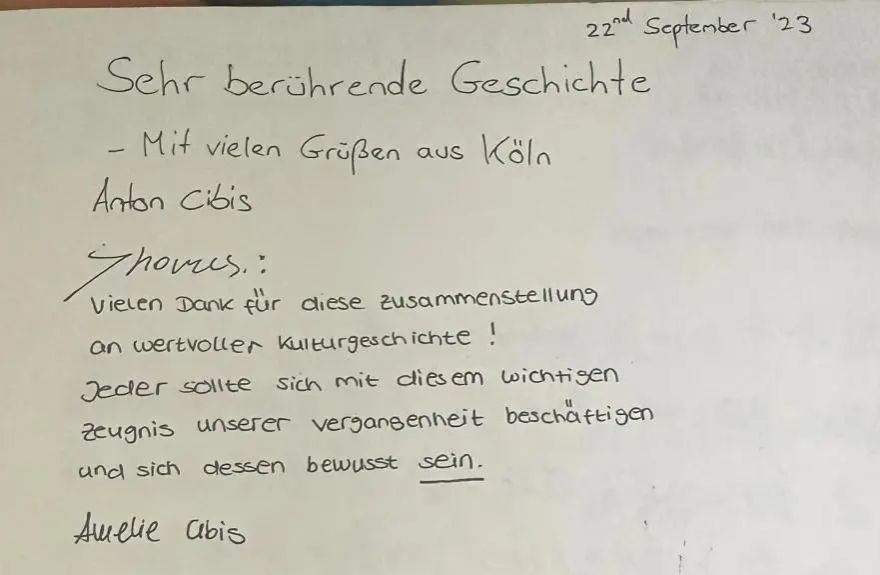 22nd September '23
Sehr berührende Geschichte
- Mit vielen Grüßen aus Köln
Anton Cibis
Vielen Dank für diese Zusammenstellung
an wertvoller Kulturgeschichte!
Jeder sollte sich mit diesem wichtigen
Zeugnis unserer Vergangenheit beschäftigen
und sich dessen bewusst sein.
Amelie Cibis